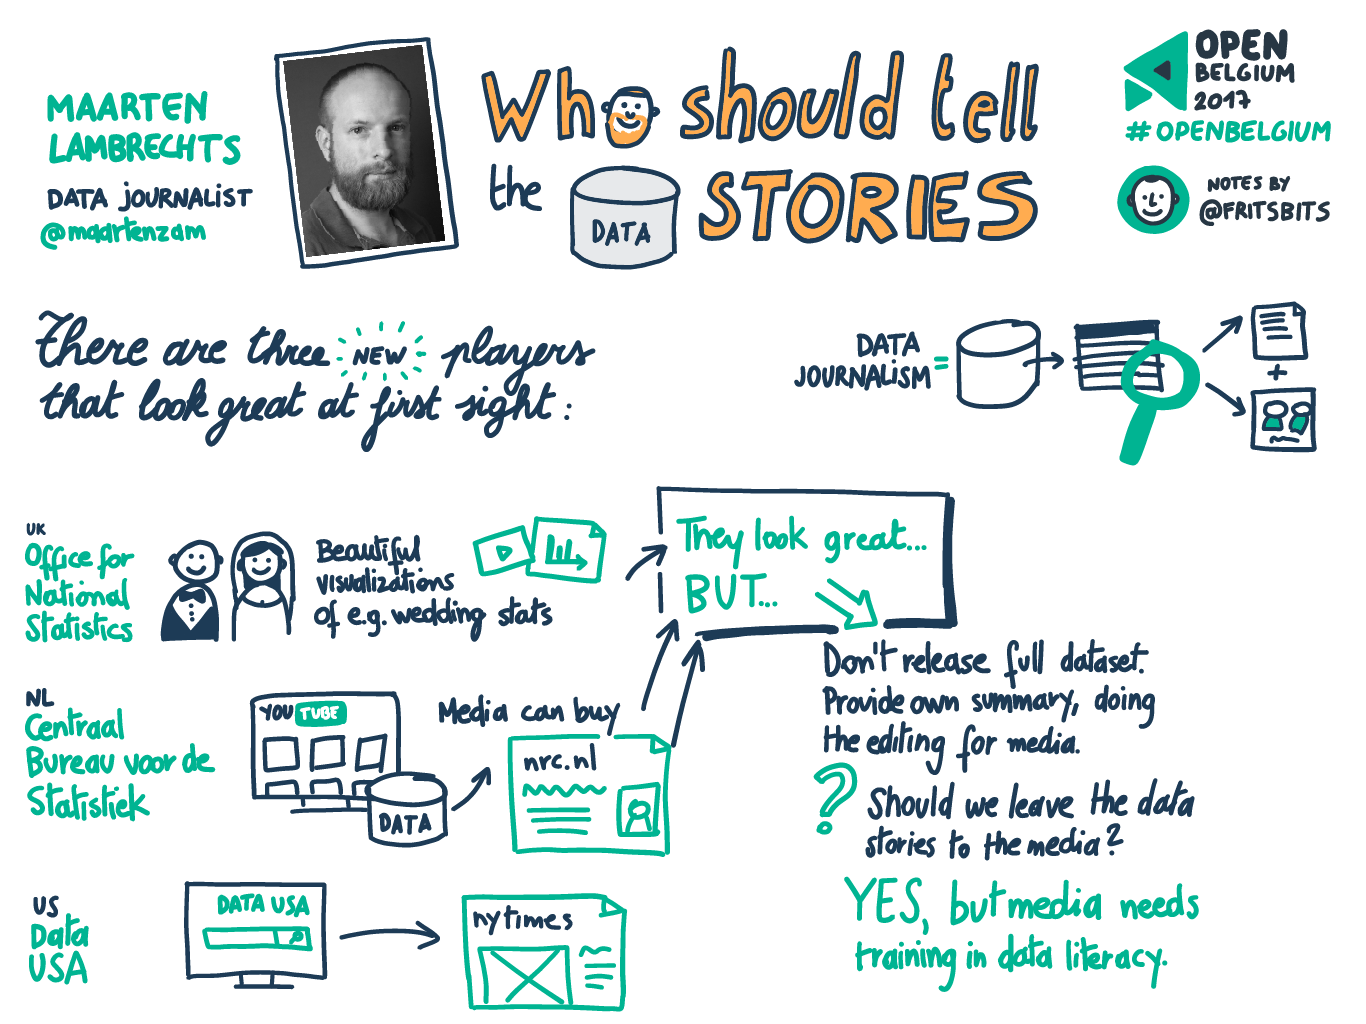 MAARTEN
LAMBRECHTS
DATA JOURNALIST
@maartenzam
Who should tell
the DATA STORIES
OPEN
BELGIUM
2017
#OPENBELGIUM
NOTES BY
@FRITSBITS
There are three NEW players
that look great at first sight:
DATA
JOURNALISM =
+
UK
Office for
National
Statistics
Beautiful
visualizations
of e.g. wedding stats
They look great...
BUT...
Don't release full dataset.
Provide own summary, doing
the editing for media.
NL
Centraal
Bureau voor de
Statistiek
YOU TUBE
DATA
Media can buy
nrc.nl
? Should we leave the data
stories to the media?
YES, but media needs
training in data literacy.
US
Data
USA
DATA USA
nytimes